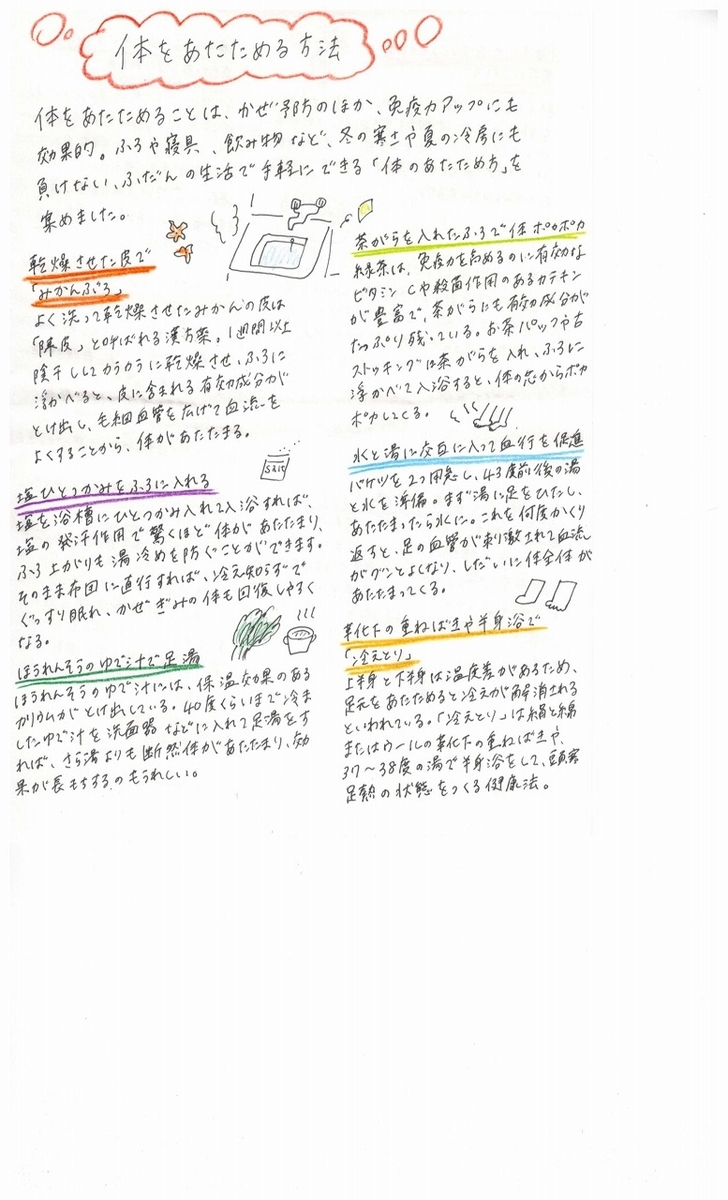 体をあたためる方法
体をあたためることは、かぜ予防のほか、免疫力アップにも
効果的。ふろや寝具、飲み物など、冬の寒さや夏の冷房にも
負けない、ふだんの生活で手軽にできる「体のあたため方」を
集めました。
乾燥させた皮で
「みかんぶろ」
よく洗って乾燥させたみかんの皮は
「陳皮」と呼ばれる漢方薬。1週間以上
陰干ししてカラカラに乾燥させ、ふろに
浮かべると、皮に含まれる有効成分が
とけ出し、毛細血管を広げて血流を
よくすることから、体があたたまる。
塩ひとつかみをふろに入れる
塩を浴槽にひとつかみ入れて入浴すれば、
塩の発汗作用で驚くほど体があたたまり、
ふろ上がりも湯冷めを防ぐことができます。
そのまま布団に直行すれば、冷え知らずで
ぐっすり眠れ、かぜぎみの体も回復しやすく
なる。
SALT
ほうれんそうのゆで汁で足湯
ほうれんそうのゆで汁には、保温効果のある
カリウムがとけ出している。40度くらいまで冷ま
したゆで汁を洗面器などに入れて足湯をす
れば、さら湯よりも断然体があたたまり、効
果が長もちするのもうれしい。
茶がらを入れたふろで体ポカポカ
緑茶は、免疫力を高めるのに有効な
ビタミンCや殺菌作用のあるカテキン
が豊富で、茶がらにも有効成分が
たっぷり残っている。お茶パックや古
ストッキングに茶がらを入れ、ふろに
浮かべて入浴すると、体の芯からポカ
ポカしてくる。
水と湯に交互に入って血行を促進
バケツを2つ用意し、43度前後の湯
と水を準備。まず湯に足をひたし、
あたたまったら水に。これを何度かくり
返すと、足の血管が刺激されて血流
がグンとよくなり、しだいに体全体が
あたたまってくる。
革化下の重ねばきや半身浴で
「冷えとり」
上半身と下半身は温度差があるため、
足元をあたためると冷えが解消される
といわれている。「冷えとり」は絹と綿
またはウールの革化下の重ねばきや、
37〜38度の湯で半身浴をして、頭寒
足熱の状態をつくる健康法。